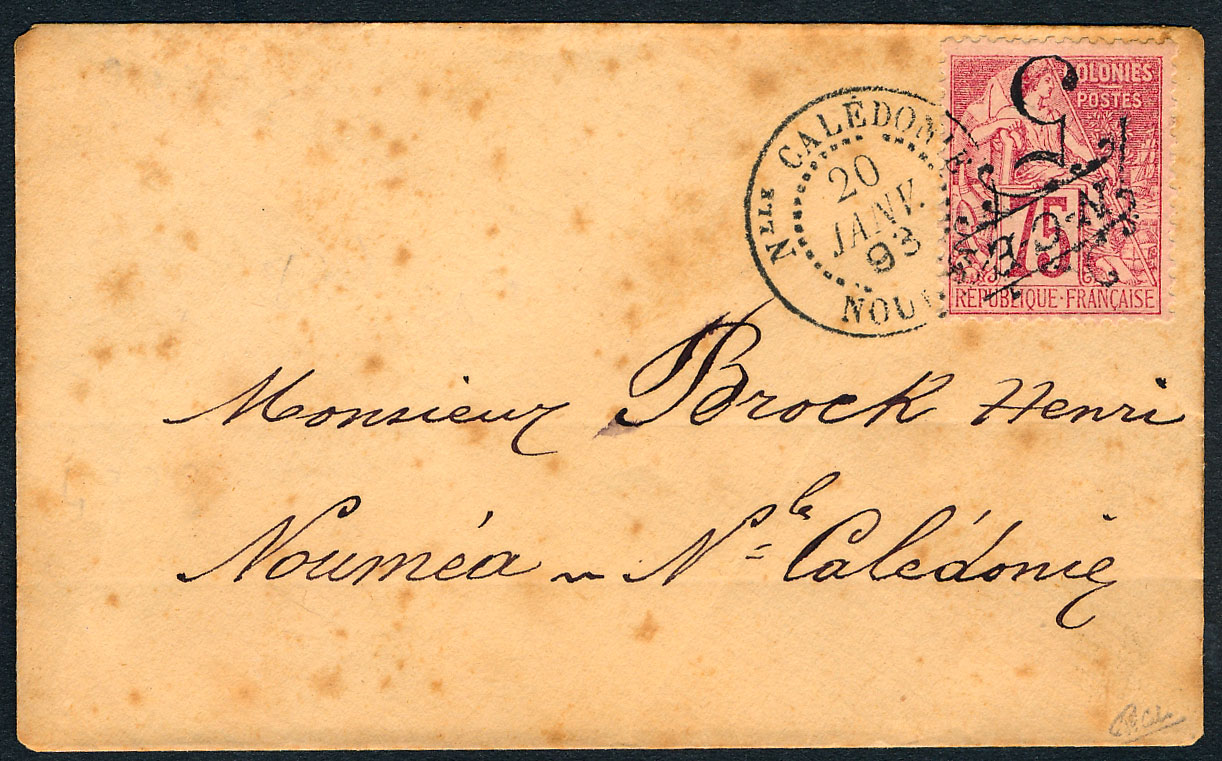 COLONIES
POSTES
75
RÉPUBLIQUE · FRANÇAISE
5
Nlle CALÉDONIE
20
JANV.
93
Monsieur Brock Henri
Nouméa ~ Nlle Calédonie